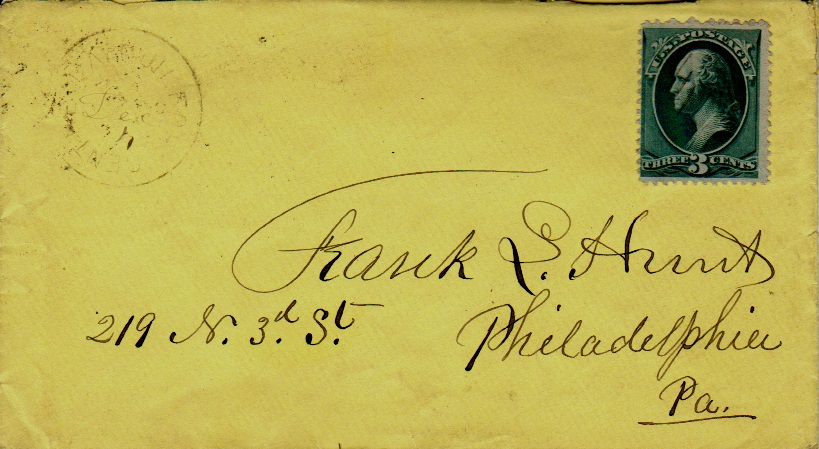 U.S. POSTAGE
THREE 3 CENTS
Frank L. Hunt
219 N. 3d. St.
Philadelphia
Pa.